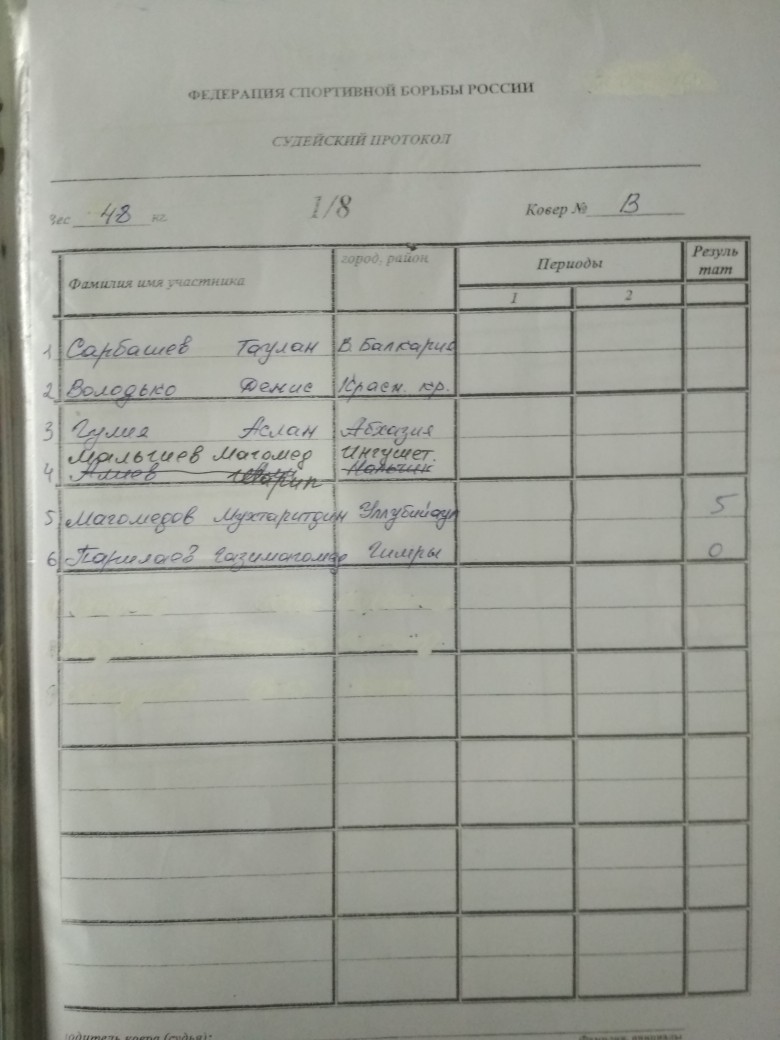 ФЕДЕРАЦИЯ СПОРТИВНОЙ БОРЬБЫ РОССИИ
СУДЕЙСКИЙ ПРОТОКОЛ
Вес 48 кг 1/8 Ковер № В
Фамилия имя участника город, район Периоды Резуль
1 2 тат
1 Сарбашев Таулан В. Балкария
2 Володько Денис Красн. кр.
3 Гулия Аслан Абхазия
Мальгиев Магомед Ингушет.
4 Алиев Шарип Нальчик
5 Магомедов Мухтаритдин Уллубийаул 5
6 Газимагомед Гимры 0